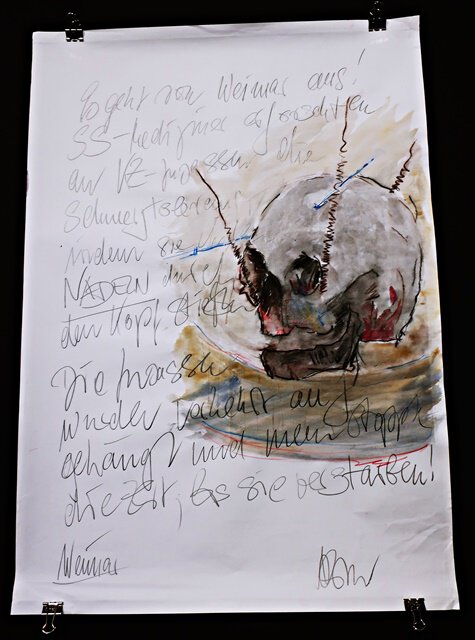 Es geht von Weimar aus!
SS-Mediziner erforschten
an KZ-Insassen die
Schmerztoleranz
indem sie
NADELN durch
den Kopf stießen
Die Insassen
wurden
gehängt und man stoppte
die Zeit, bis sie verstarben!
Weimar